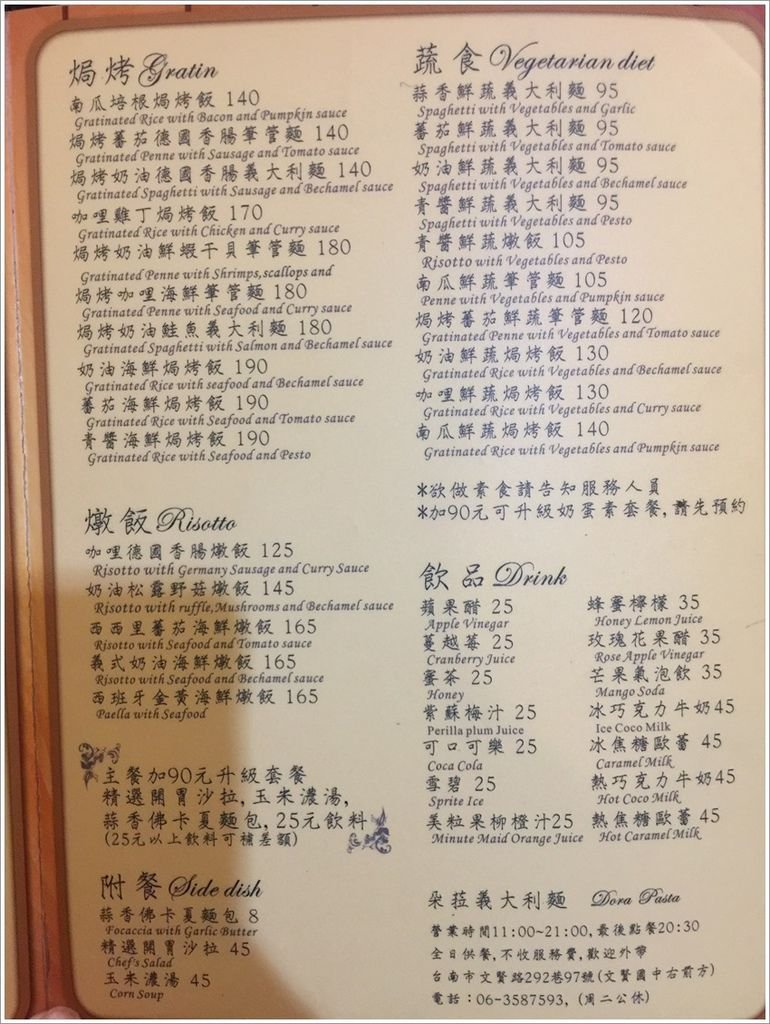 焗烤 Gratin
南瓜培根焗烤飯 140
Gratinated Rice with Bacon and Pumpkin sauce
焗烤蕃茄德國香腸筆管麵 140
Gratinated Penne with Sausage and Tomato sauce
焗烤奶油德國香腸義大利麵 140
Gratinated Spaghetti with Sausage and Bechamel sauce
咖哩雞丁焗烤飯 170
Gratinated Rice with Chicken and Curry sauce
焗烤奶油鮮蝦干貝筆管麵 180
Gratinated Penne with Shrimps,scallops and
焗烤咖哩海鮮筆管麵 180
Gratinated Penne with Seafood and Curry sauce
焗烤奶油鮭魚義大利麵 180
Gratinated Spaghetti with Salmon and Bechamel sauce
奶油海鮮焗烤飯 190
Gratinated Rice with seafood and Bechamel sauce
蕃茄海鮮焗烤飯 190
Gratinated Rice with Seafood and Tomato sauce
青醬海鮮焗烤飯 190
Gratinated Rice with Seafood and Pesto
燉飯 Risotto
咖哩德國香腸燉飯 125
Risotto with Germany Sausage and Curry Sauce
奶油松露野菇燉飯 145
Risotto with ruffle,Mushrooms and Bechamel sauce
西西里蕃茄海鮮燉飯 165
Risotto with Seafood and Tomato sauce
義式奶油海鮮燉飯 165
Risotto with Seafood and Bechamel sauce
西班牙金黃海鮮燉飯 165
Paella with Seafood
主餐加90元升級套餐
精選開胃沙拉,玉米濃湯,
蒜香佛卡夏麵包,25元飲料
(25元以上飲料可補差額)
附餐 Side dish
蒜香佛卡夏麵包 8
Focaccia with Garlic Butter
精選開胃沙拉 45
Chef's Salad
玉米濃湯 45
Corn Soup
蔬食 Vegetarian diet
蒜香鮮蔬義大利麵 95
Spaghetti with Vegetables and Garlic
蕃茄鮮蔬義大利麵 95
Spaghetti with Vegetables and Tomato sauce
奶油鮮蔬義大利麵 95
Spaghetti with Vegetables and Bechamel sauce
青醬鮮蔬義大利麵 95
Spaghetti with Vegetables and Pesto
青醬鮮蔬燉飯 105
Risotto with Vegetables and Pesto
南瓜鮮蔬筆管麵 105
Penne with Vegetables and Pumpkin sauce
焗烤蕃茄鮮蔬筆管麵 120
Gratinated Penne with Vegetables and Tomato sauce
奶油鮮蔬焗烤飯 130
Gratinated Rice with Vegetables and Bechamel sauce
咖哩鮮蔬焗烤飯 130
Gratinated Rice with Vegetables and Curry sauce
南瓜鮮蔬焗烤飯 140
Gratinated Rice with Vegetables and Pumpkin sauce
*欲做素食請告知服務人員
*加90元可升級奶蛋素套餐,請先預約
飲品 Drink
蘋果醋 25
Apple Vinegar
蔓越莓 25
Cranberry Juice
蜜茶 25
Honey
紫蘇梅汁 25
Perilla plum Juice
可口可樂 25
Coca Cola
雪碧 25
Sprite Ice
美粒果柳橙汁25
Minute Maid Orange Juice
蜂蜜檸檬 35
Honey Lemon Juice
玫瑰花果醋 35
Rose Apple Vinegar
芒果氣泡飲 35
Mango Soda
冰巧克力牛奶45
Ice Coco Milk
冰焦糖歐蕾 45
Caramel Milk
熱巧克力牛奶45
Hot Coco Milk
熱焦糖歐蕾 45
Hot Caramel Milk
朵菈義大利麵 Dora Pasta
營業時間11:00~21:00,最後點餐20:30
全日供餐,不收服務費,歡迎外帶
台南市文賢路292巷97號(文賢國中右前方)
電話:06-3587593, (周二公休)